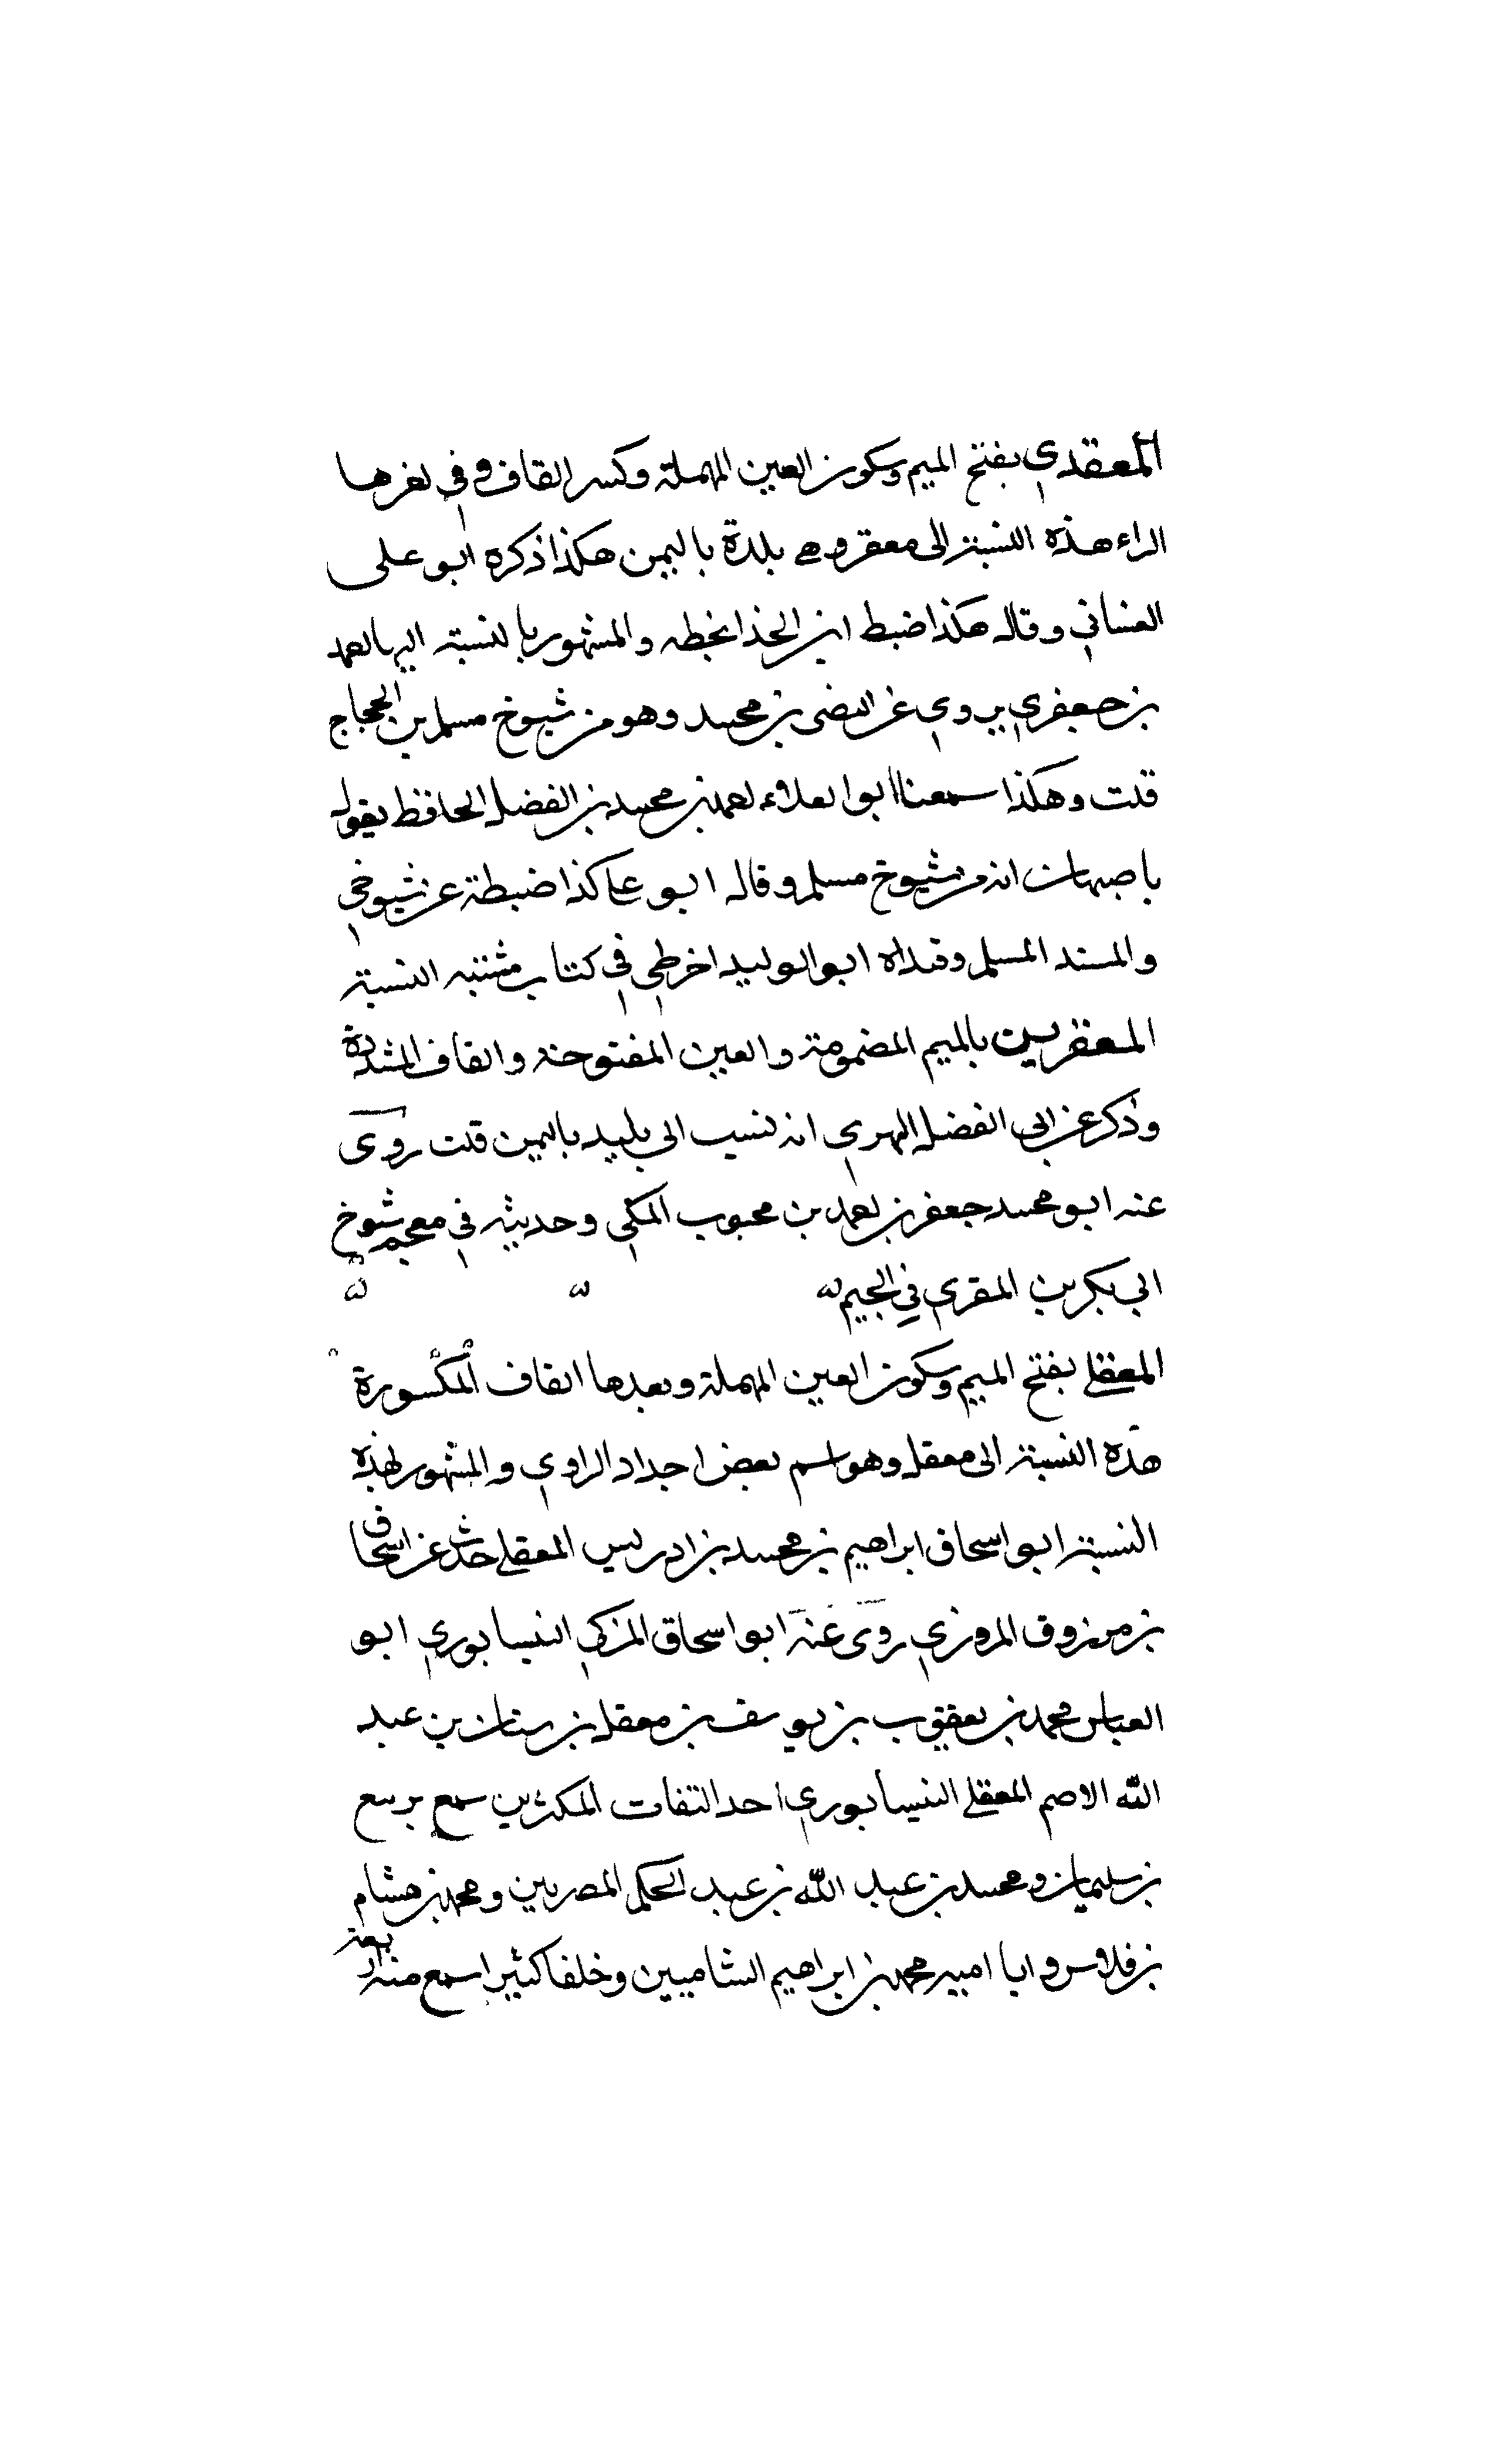 المعقدي بفتح الميم وسكون العين المهملة وكسر القاف وفي اخرها
الراء هذه النسبة الى معقر وهي بلدة باليمن هكذا ذكره ابو على
الغساني وقال هكذا ضبط ابن الحذا بخطه والمشهور بالنسبة اليها احمد
بن جعفري يروي عن النضر بن محمد وهو من شيوخ مسلم بن الحجاج
قلت وهكذا سمعنا ابو العلاء احمد بن محمد بن الفضل الحافظ يقول
باصبهان انه من شيوخ مسلم وقال ابو على كذا ضبطة عن شيوخي
والمسند المسلم وقيداه ابو الوليد اخرطي في كتاب مشتبه النسبة
المعقريين بالميم المضمومة والعين المفتوحة والقاف المشددة
وذكر عن ابى الفضل الهروي انه نسب الى بليد باليمن قلت روى
عنه ابو محمد جعفر بن احمد بن محبوب المكي وحديثه في معجم شيوخ
ابي بكر بن المقري في الجيم
المعقلي بفتح الميم وسكون العين المهملة وبعدها القاف المكسورة
هذه النسبة الى معقل وهو اسم بعض اجداد الراوي والمشهور لهذه
النسبة ابو اسحاق ابراهيم بن محمد بن ادريس المعقلي حدث عن اسحاق
بن مرزوق المروزي روى عنه ابو اسحاق المزكي النيسابوري ابو
العباس محمد بن يعقوب بن يوسف بن معقل بن سنان بن عبد
الله الاصم المعقلي النيسابوري احد الثقات المكثرين سمع بربيع
بن سليمان ومحمد بن عبد الله بن عبد الحكم المصريين ومحمد بن هشام
بن فلاس وابا امية محمد بن ابراهيم الشاميين وخلقا كثيرا سمع منه